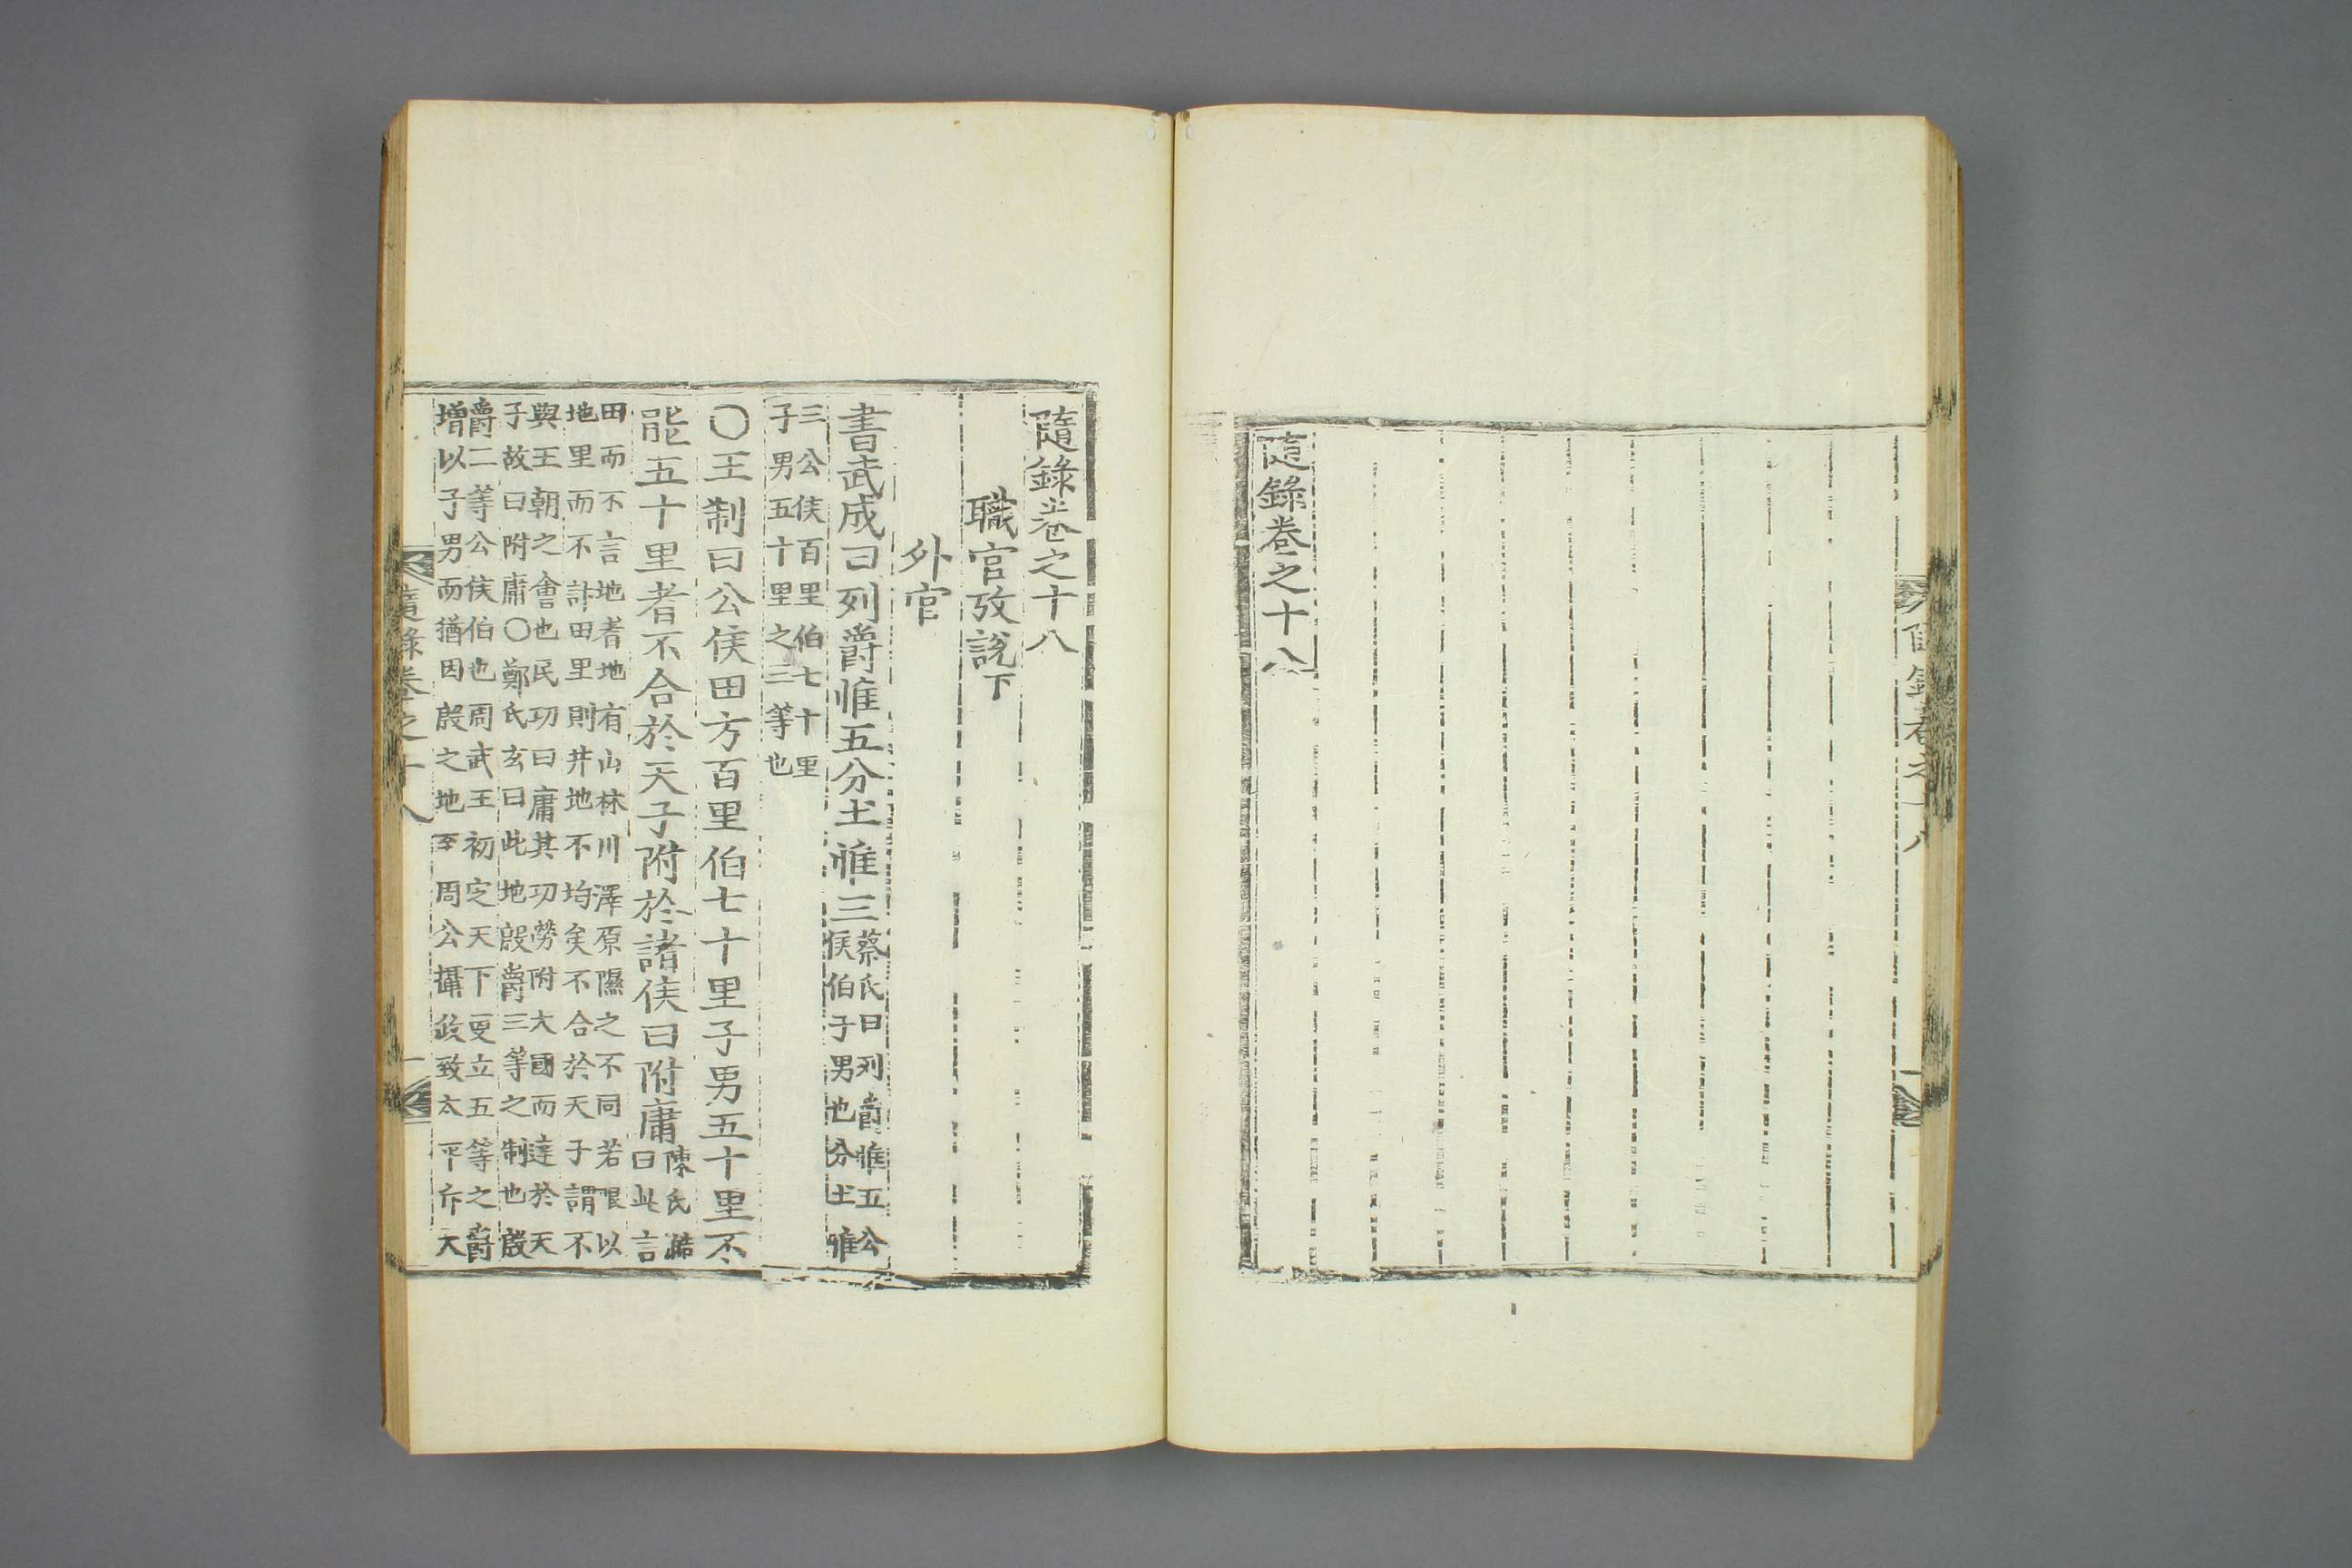 隨錄卷之十八
隨錄卷之十八
隨錄卷之十八
職官攷說下
外官
書武成曰列爵惟五分土惟三蔡氏曰列爵惟五公
侯伯子男也分土惟
三公侯百里伯七十里
子男五十里之三等也
〇王制曰公侯田方百里伯七十里子男五十里不
能五十里者不合於天子附於諸侯曰附庸陳氏澔
曰此言
田而不言地者地有山林川澤原隰之不同若限以
地里而不計田里則井地不均矣不合於天子謂不
與王朝之會也民功曰庸其功勞附大國而達於天
子故曰附庸〇鄭氏玄曰此地殷爵三等之制也殷
爵二等公侯伯也周武王初定天下更立五等之爵
增以子男而猶因殷之地至周公攝政致太平斥大
隨錄卷之十八
一